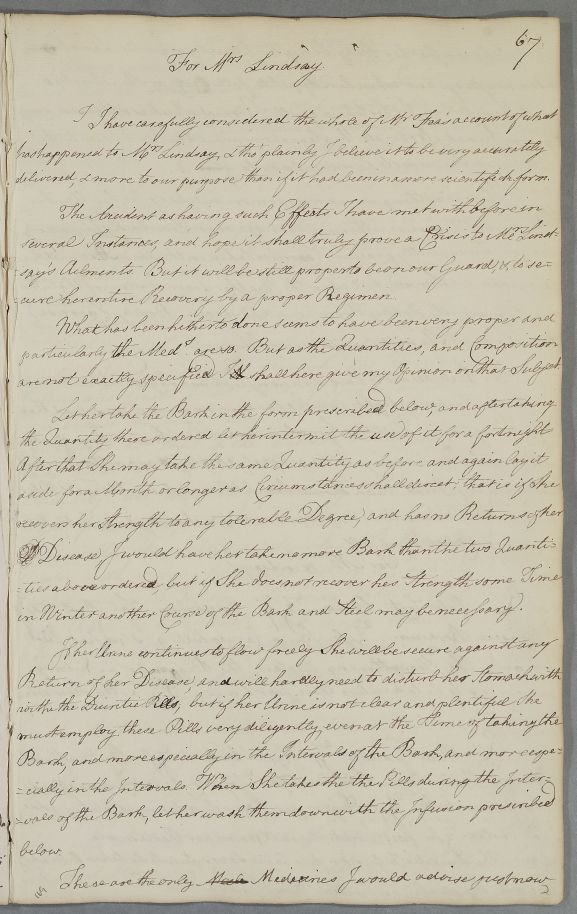 67
For Mrs Lindsay
I have carefully considered the whole of Mr Fea's account of what
has happened to Mrs Lindsay, & tho' plainly I believe it to be very accurately
delivered, & more to our purpose than if it had been in a more scientifick form.
The Accident as having such Effects I have met with before in
several Instances, and hope it shall truly prove a Crisis to Mrs Lind-
say's Ailments. But it will be still proper to be on our Guard, & to se-
:cure her entire Recovery by a proper Regimen.
What has been hitherto done seems to have been very proper and
particularly the Meds. are so. But as the Quantities, and Composition
are not exactly specified I shall here give my Opinion on that Subject.
Let her take the Bark in the form prescribed below, and after taking
the Quantity there ordered let her intermit the use of it for a fortnight
After that She may take the same Quantity as before and again lay it
aside for a Month or longer as Circumstances shall direct; that is if She
recovers her Strength to any tolerable Degree, and has no Returns of her
Disease I would have her take no more Bark than the two Quanti-
ties above ordered, but if She does not recover her Strength some Time
in Winter another Course of the Bark and Steel may be necessary.
If her Urine continues to flow freely She will be secure against any
Return of her Disease, and will hardly need to disturb her Stomach with
withe the Diuretic Pills, but if her Urine is not clear and plentiful She
must employ these Pills very diligently, even at the Time of taking the
Bark, and more especially in the Intervals of the Bark, and mor espe-
:cially in the Intervals. When She takes the the Pills during the Inter-
:vals of the Bark, let her wash them down with the Infusion prescribed
below.
These are the only Medicines I would advise just now